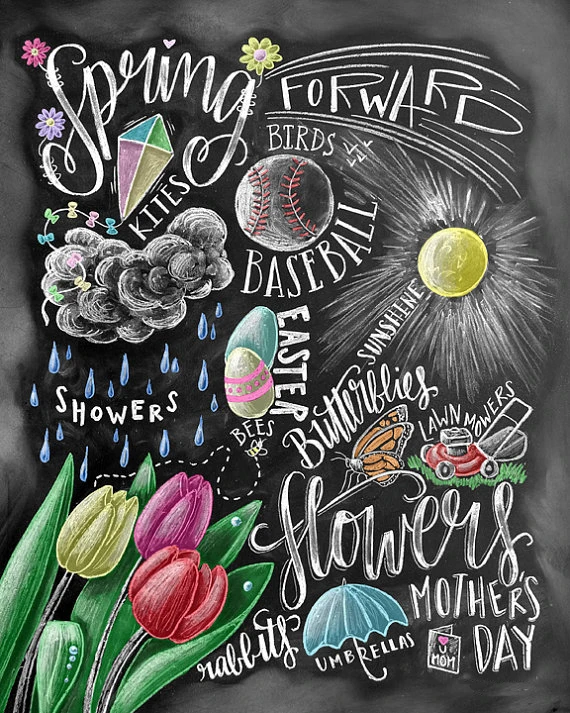 Spring
FORWARD
BIRDS
KITES
BASEBALL
SUNSHINE
EASTER
SHOWERS
Butterflies
BEES
LAWN MOWERS
flowers
MOTHER'S
DAY
rabbits
UMBRELLAS
U
MOM